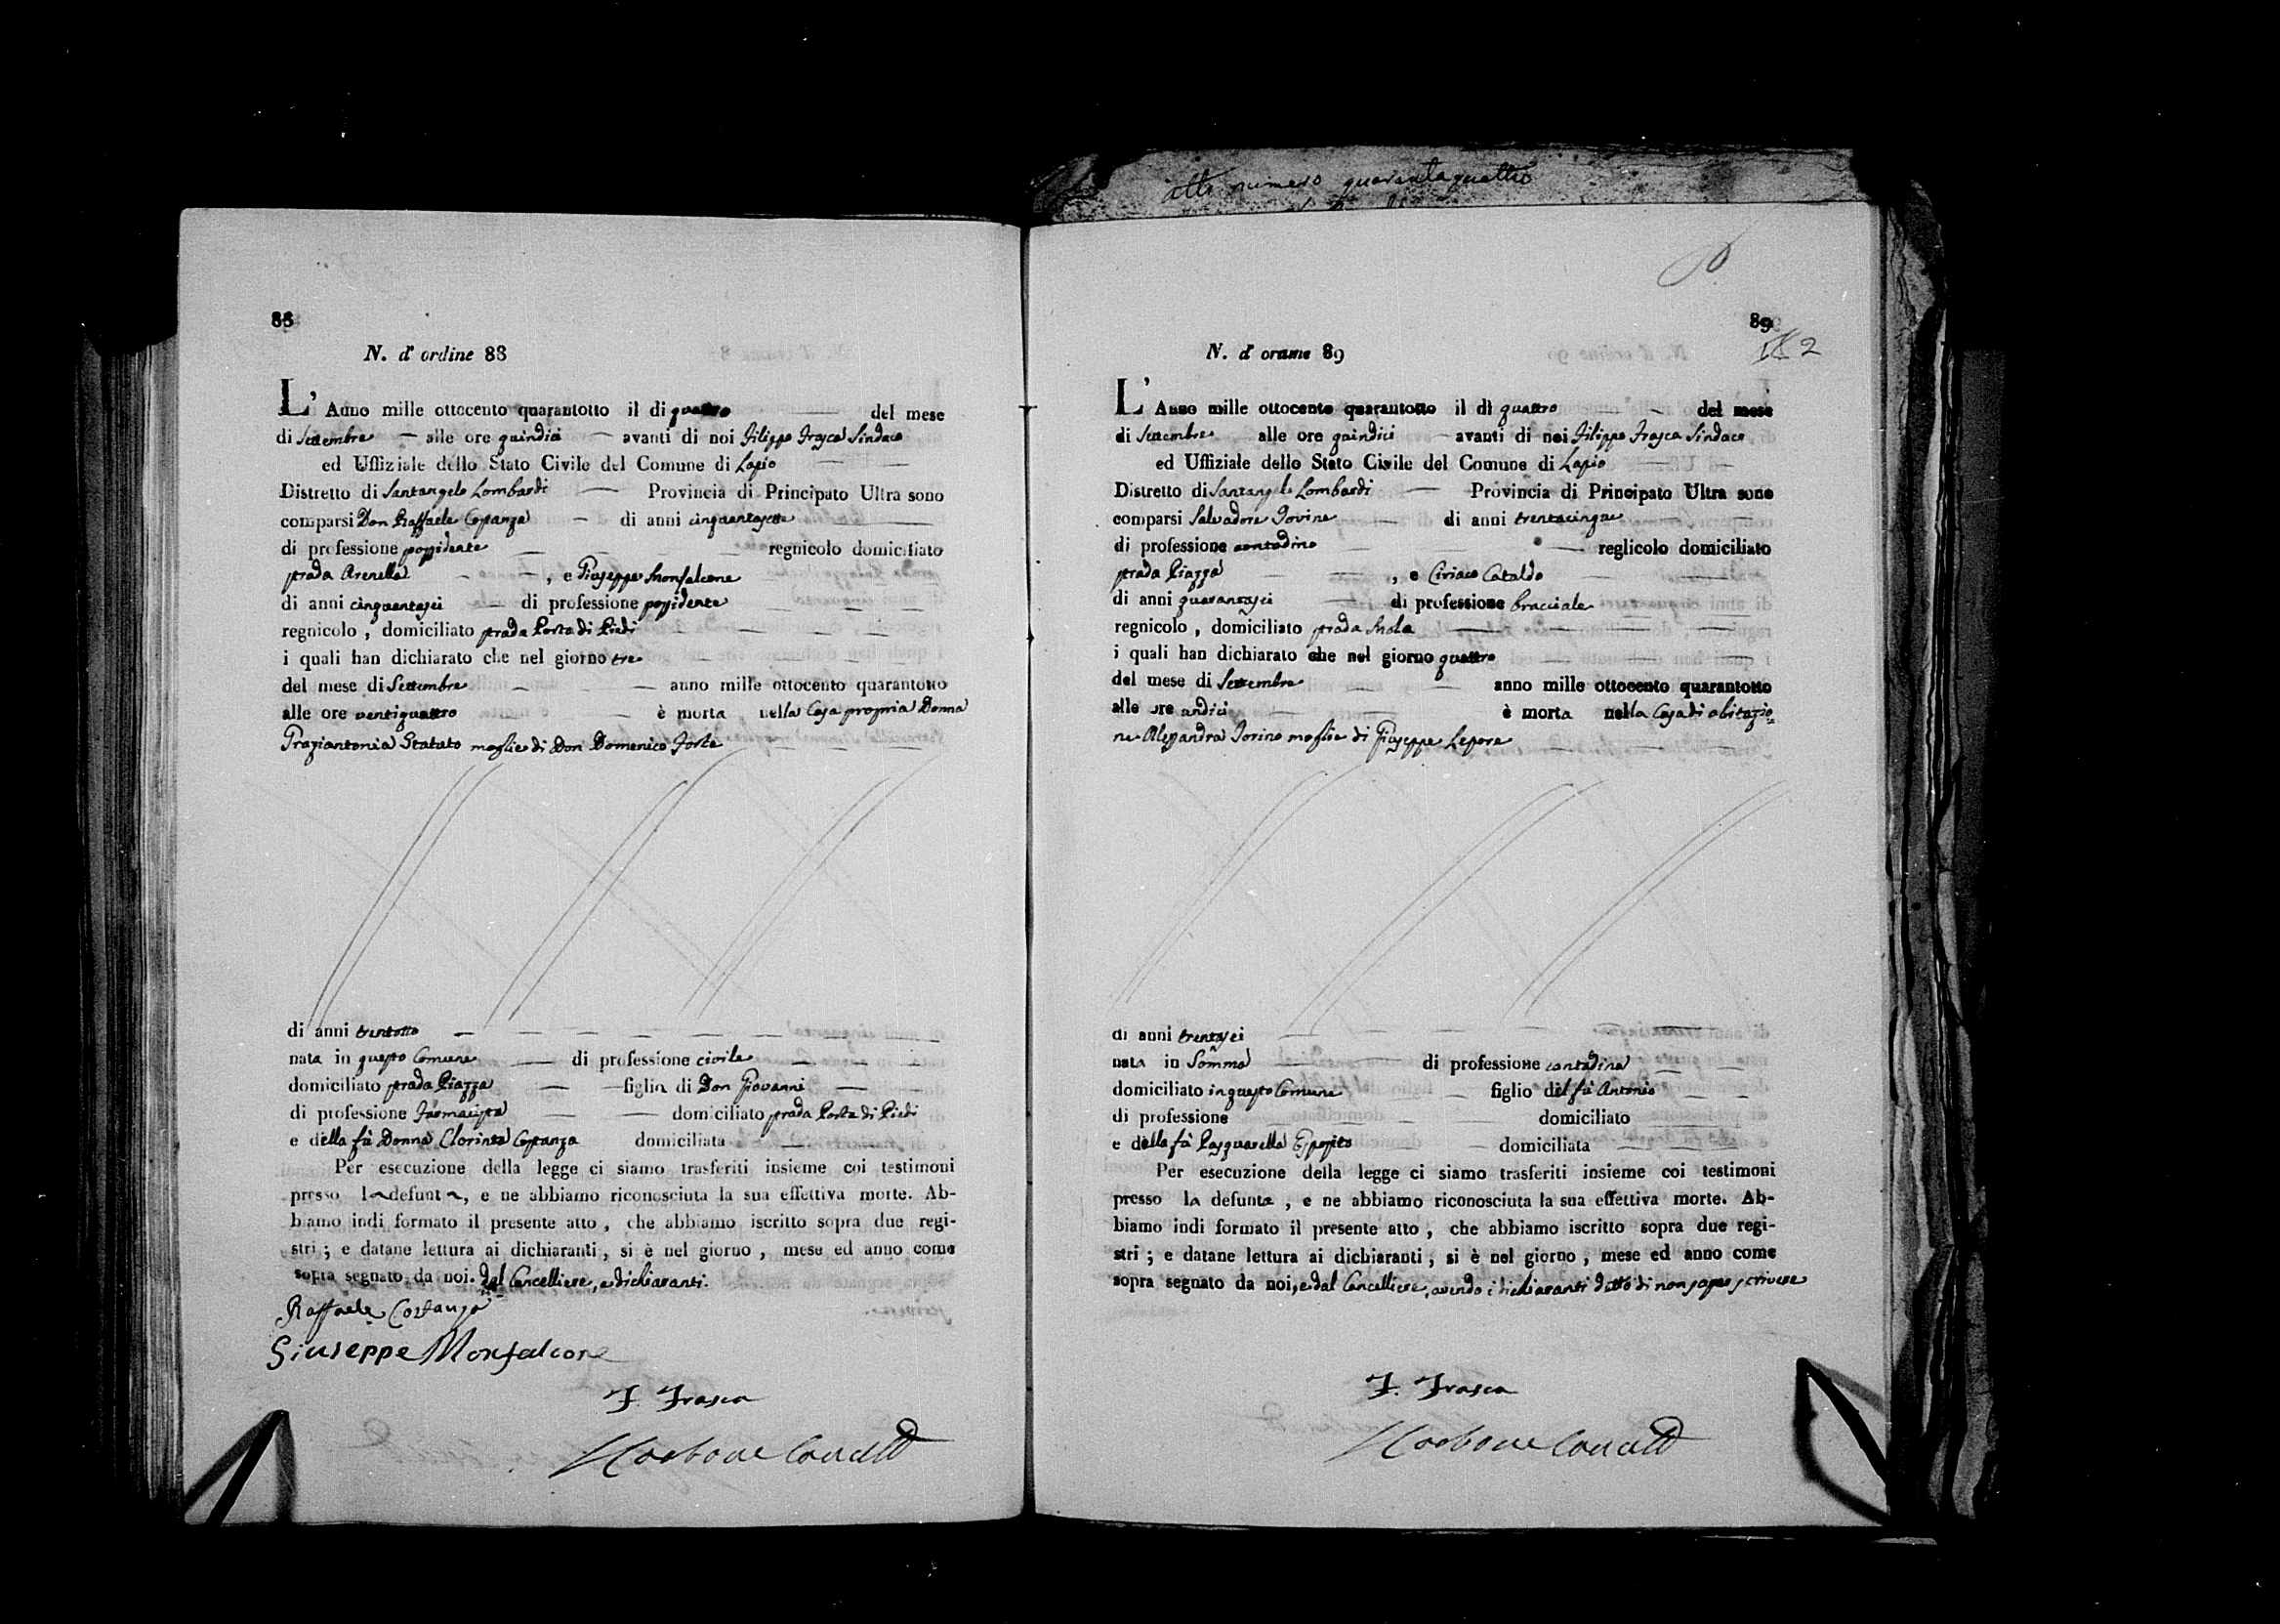 atto numero quarantaquattro
88
N. d'ordine 88
L'Anno mille ottocento quarantotto il di quattro del mese
di Settembre alle ore quindici avanti di noi Filippo Frasca Sindaco
ed Uffiziale dello Stato Civile del Comune di Lapio
Distretto di Santangelo Lombardi Provincia di Principato Ultra sono
comparsi Don Raffaele Costanza di anni cinquantasette
di professione possidente regnicolo domiciliato
strada Arenella , e Giuseppe Monfalcone
di anni cinquantasei di professione possidente
regnicolo , domiciliato strada Porta di Piedi
i quali han dichiarato che nel giorno tre
del mese di Settembre anno mille ottocento quarantotto
alle ore ventiquattro è morta nella Casa propria Donna
Graziantonia Statuto moglie di Don Domenico Forte
di anni trentotto
nata in questo Comune di professione civile
domiciliato strada Piazza figlia di Don Giovanni
di professione Farmacista domiciliato strada Porta di Piedi
e della fù Donna Clorinta Costanza domiciliata
Per esecuzione della legge ci siamo trasferiti insieme coi testimoni
presso la defunta, e ne abbiamo riconosciuta la sua effettiva morte. Ab-
biamo indi formato il presente atto , che abbiamo iscritto sopra due regi-
stri ; e datane lettura ai dichiaranti , si è nel giorno , mese ed anno come
sopra segnato da noi. dal Cancelliere, e dichiaranti.
Raffaele Costanza
Giuseppe Monfalcone
F. Frasca
89
2
N. d'ordine 89
L'Anno mille ottocento quarantotto il dì quattro del mese
di Settembre alle ore quindici avanti di noi Filippo Frasca Sindaco
ed Uffiziale dello Stato Civile del Comune di Lapio
Distretto di Santangelo Lombardi Provincia di Principato Ultra sono
comparsi Salvadore Iovine di anni trentacinque
di professione contadino reglicolo domiciliato
strada Piazza , e Ciriaco Cataldo
di anni quarantasei di professione bracciale
regnicolo , domiciliato strada Mola
i quali han dichiarato che nel giorno quattro
del mese di Settembre anno mille ottocento quarantotto
alle ore undici è morta nella Casa di abitazio=
ne Alessandra Iorino moglie di Giuseppe Lepore
di anni trentasei
nata in Somma di professione contadina
domiciliato in questo Comune figlio del fù Antonio
di professione domiciliato
e della fù Pasquarella Esposito domiciliata
Per esecuzione della legge ci siamo trasferiti insieme coi testimoni
presso la defunta , e ne abbiamo riconosciuta la sua effettiva morte. Ab-
biamo indi formato il presente atto , che abbiamo iscritto sopra due regi-
stri ; e datane lettura ai dichiaranti , si è nel giorno , mese ed anno come
sopra segnato da noi, e dal Cancelliere, avendo i dichiaranti detto di non saper scrivere
F. Frasca